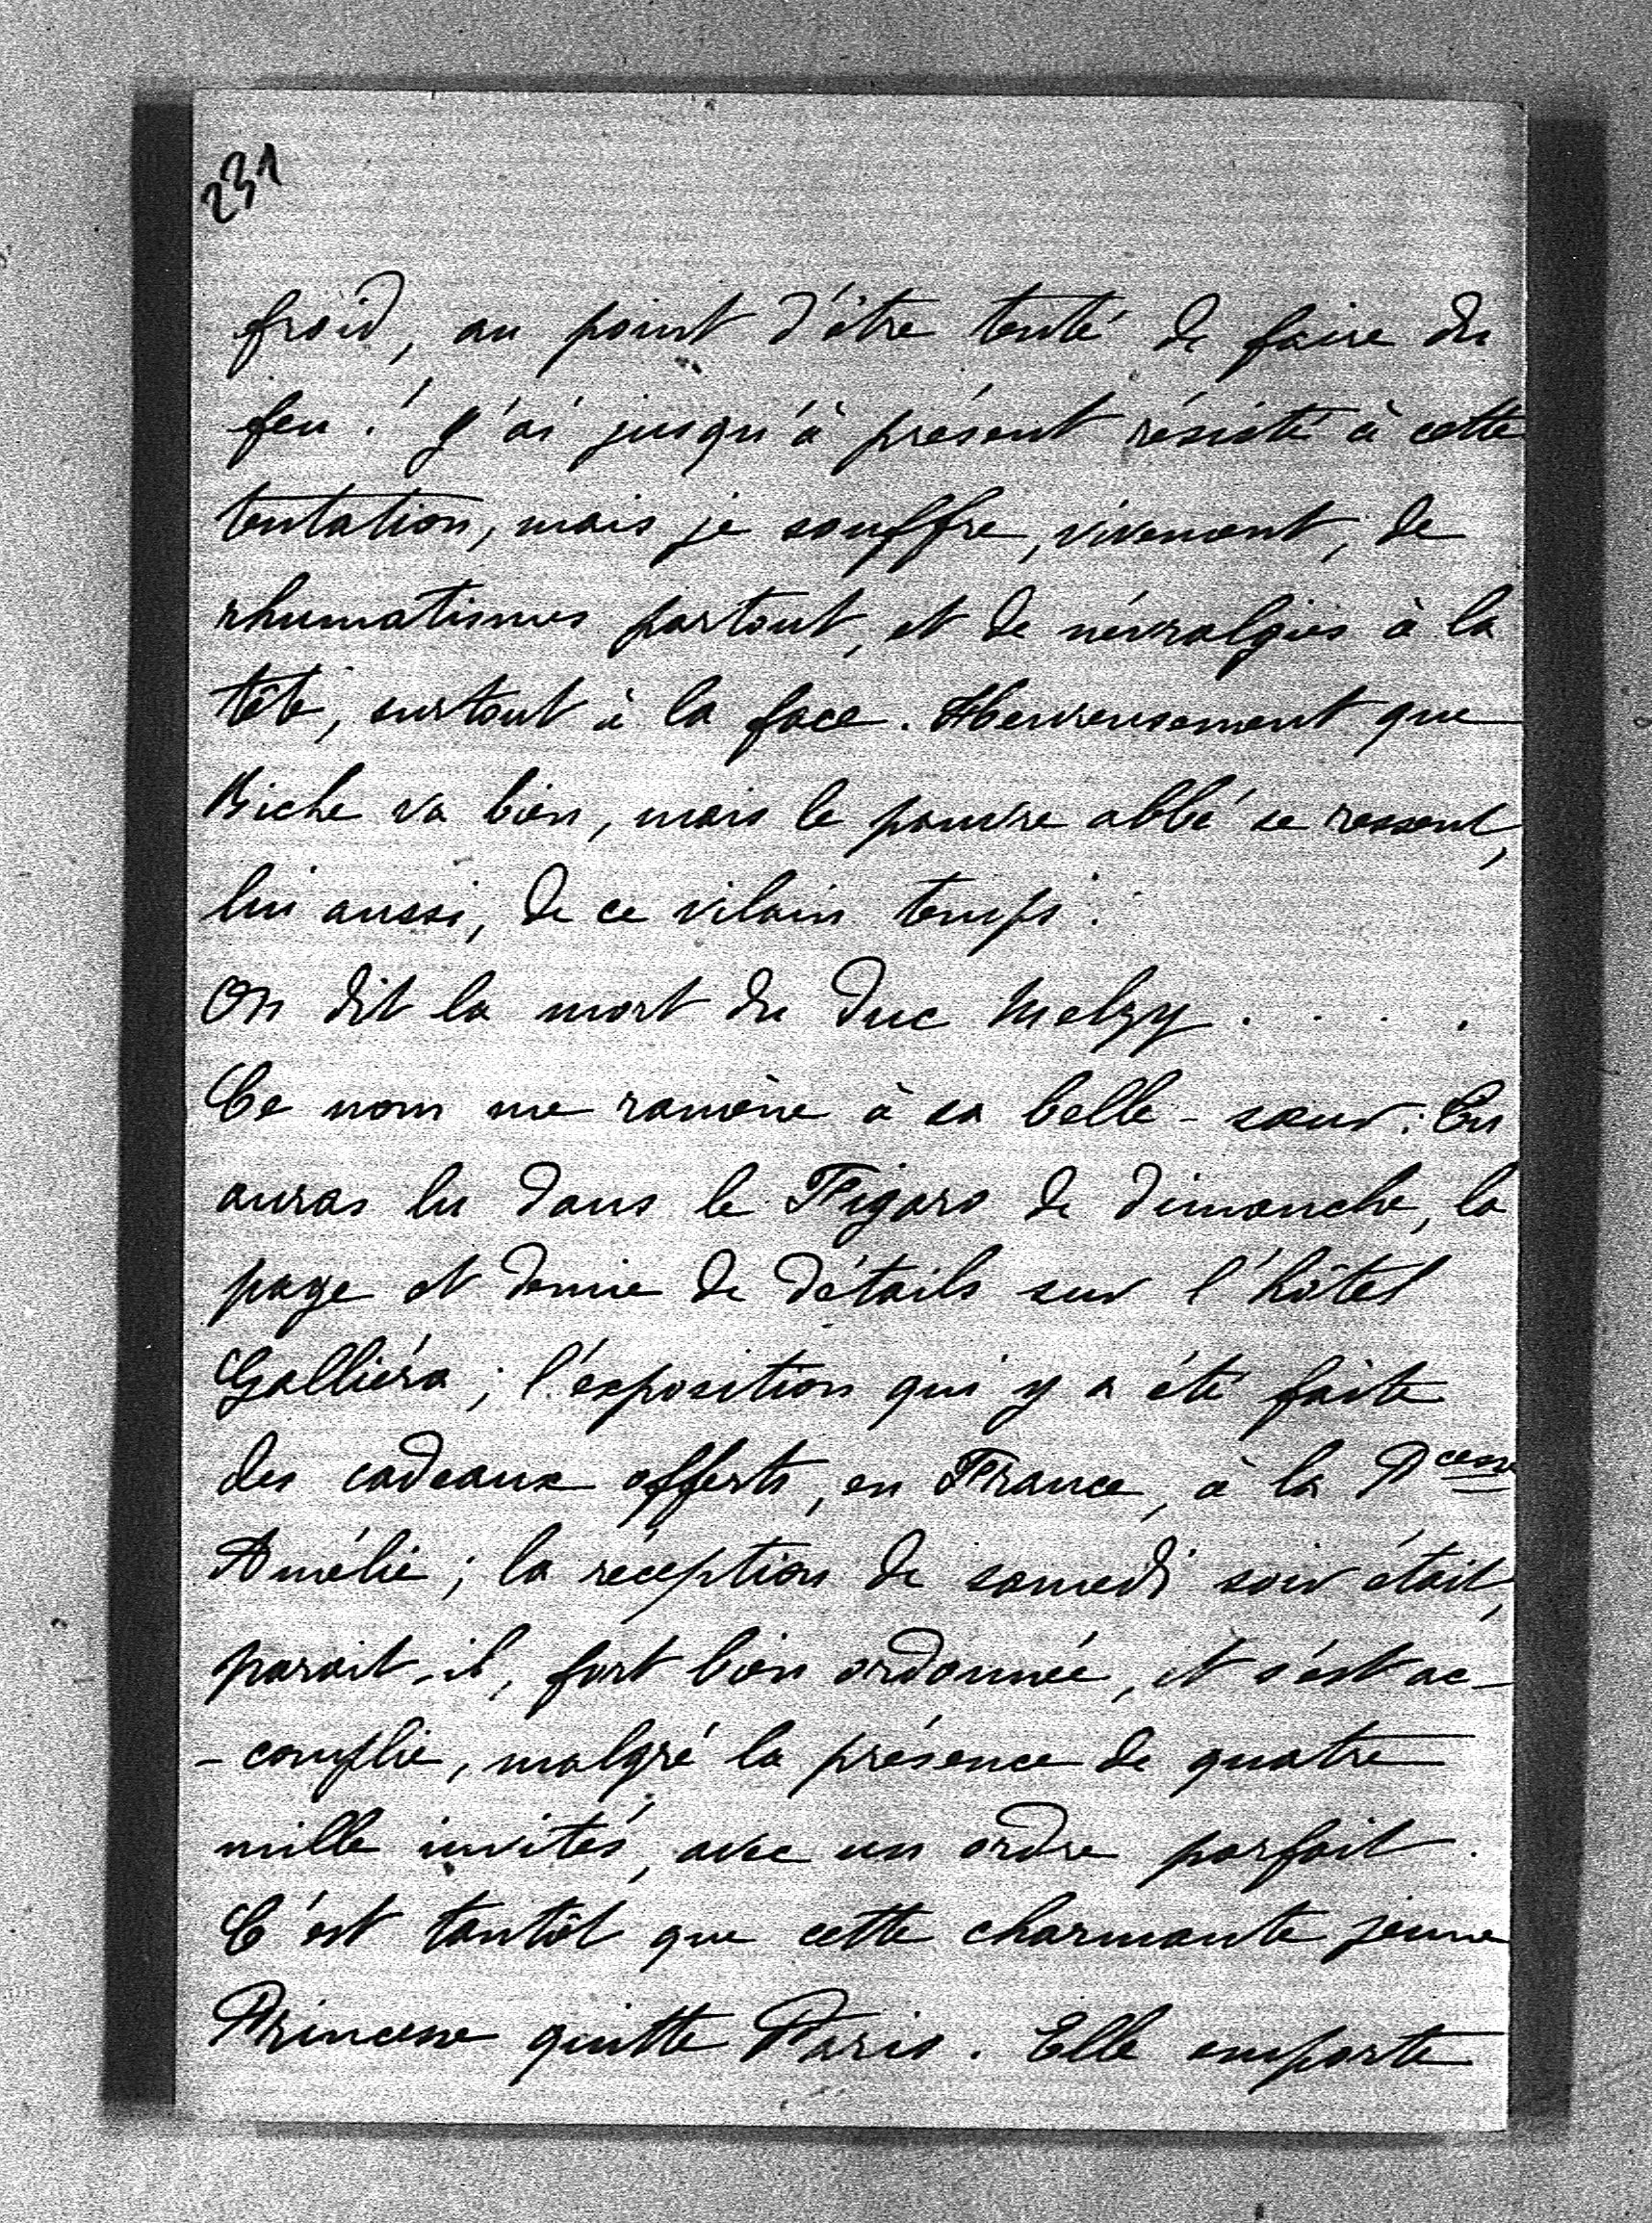 231
froid, au point d'être tenté de faire du
feu! J'ai jusqu'à présent résisté à cette
tentation, mais je souffre, vivement, de
rhumatismes partout, et de névralgies à la
tête, surtout à la face. Heureusement que
Biche va bien, mais le pauvre abbé se ressent,
lui aussi, de ce vilain temps.
On dit la mort du Duc Melzy . . . .
Ce nom me ramène à sa belle-sœur. Tu
auras lu dans le Figaro de dimanche, la
page et demie de détails sur l'hôtel
Galliéra; l'exposition qui y a été faite
des cadeaux offerts, en France, à la Pcesse
Amélie; la réception de samedi soir était,
parait-il, fort bien ordonnée, et s'est ac-
-complie, malgré la présence de quatre
mille invités, avec un ordre parfait.
C'est tantôt que cette charmante jeune
Princesse quitte Paris. Elle emporte